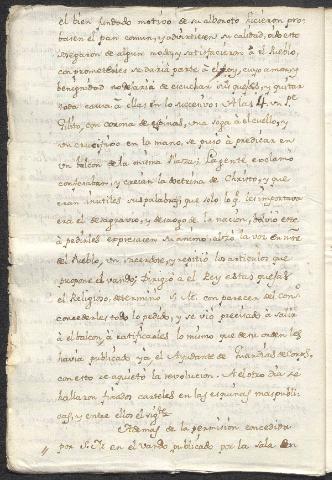 el bien fundado motivo de su alboroto hicieron pro-
basen el pan comun, y advirtiesen su calidad,
sosegaron de algun modo, y satisfacieron à el Pueblo,
con prometerles se daria parte à el Rey, cuyo amor, y
benignidad no dejaria de escuchar sus quejas, y quitar
toda causa à ellas en lo succesivo: A las 4 un Pe
Gilito, con corona de espinas, una soga à el cuello, y
un crucifijo en la mano, se puso à predicar en
un balcon de la misma Plaza: La gente exclamo
conservaban, y creian la doctrina de Christo, y que
eran inutiles sus palabras, que solo lo q. les importava
era el desagravio, y desaogo de la nacion, bolvio este
à pedirles expresasen su animo, alzò la voz en nre
del Pueblo, un sacerdote, y repitiò los articulos que
propone el vando; Dirigiò à el Rey estas quejas
el Religioso, determino S. M. con parecer del Consº
concederles todo lo pedido, y se viò precisado à salir
à el balcon, à ratificarles lo mismo que de su orden les
havia publicado ya el Ayudante de Guardias de Corps,
con esto se aquietò la revolucion. A el otro dia se
hallaron fixados carteles en las esquinas mas publi-
cas, y entre ellos el sigte
Ademas de la permision concedida
por S. M. en el vando publicado por la Sala en